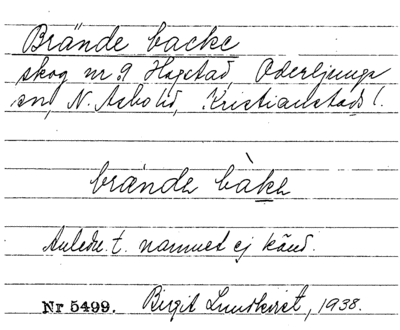 Brände backe
skog nr 9 Hagstad, Oderljunga
sn, N. Åsbo hd, Kristianstads l.
brände bàkə
Anledn. t. namnet ej känd.
Nr 5499. Birgit Lundkvist, 1938.